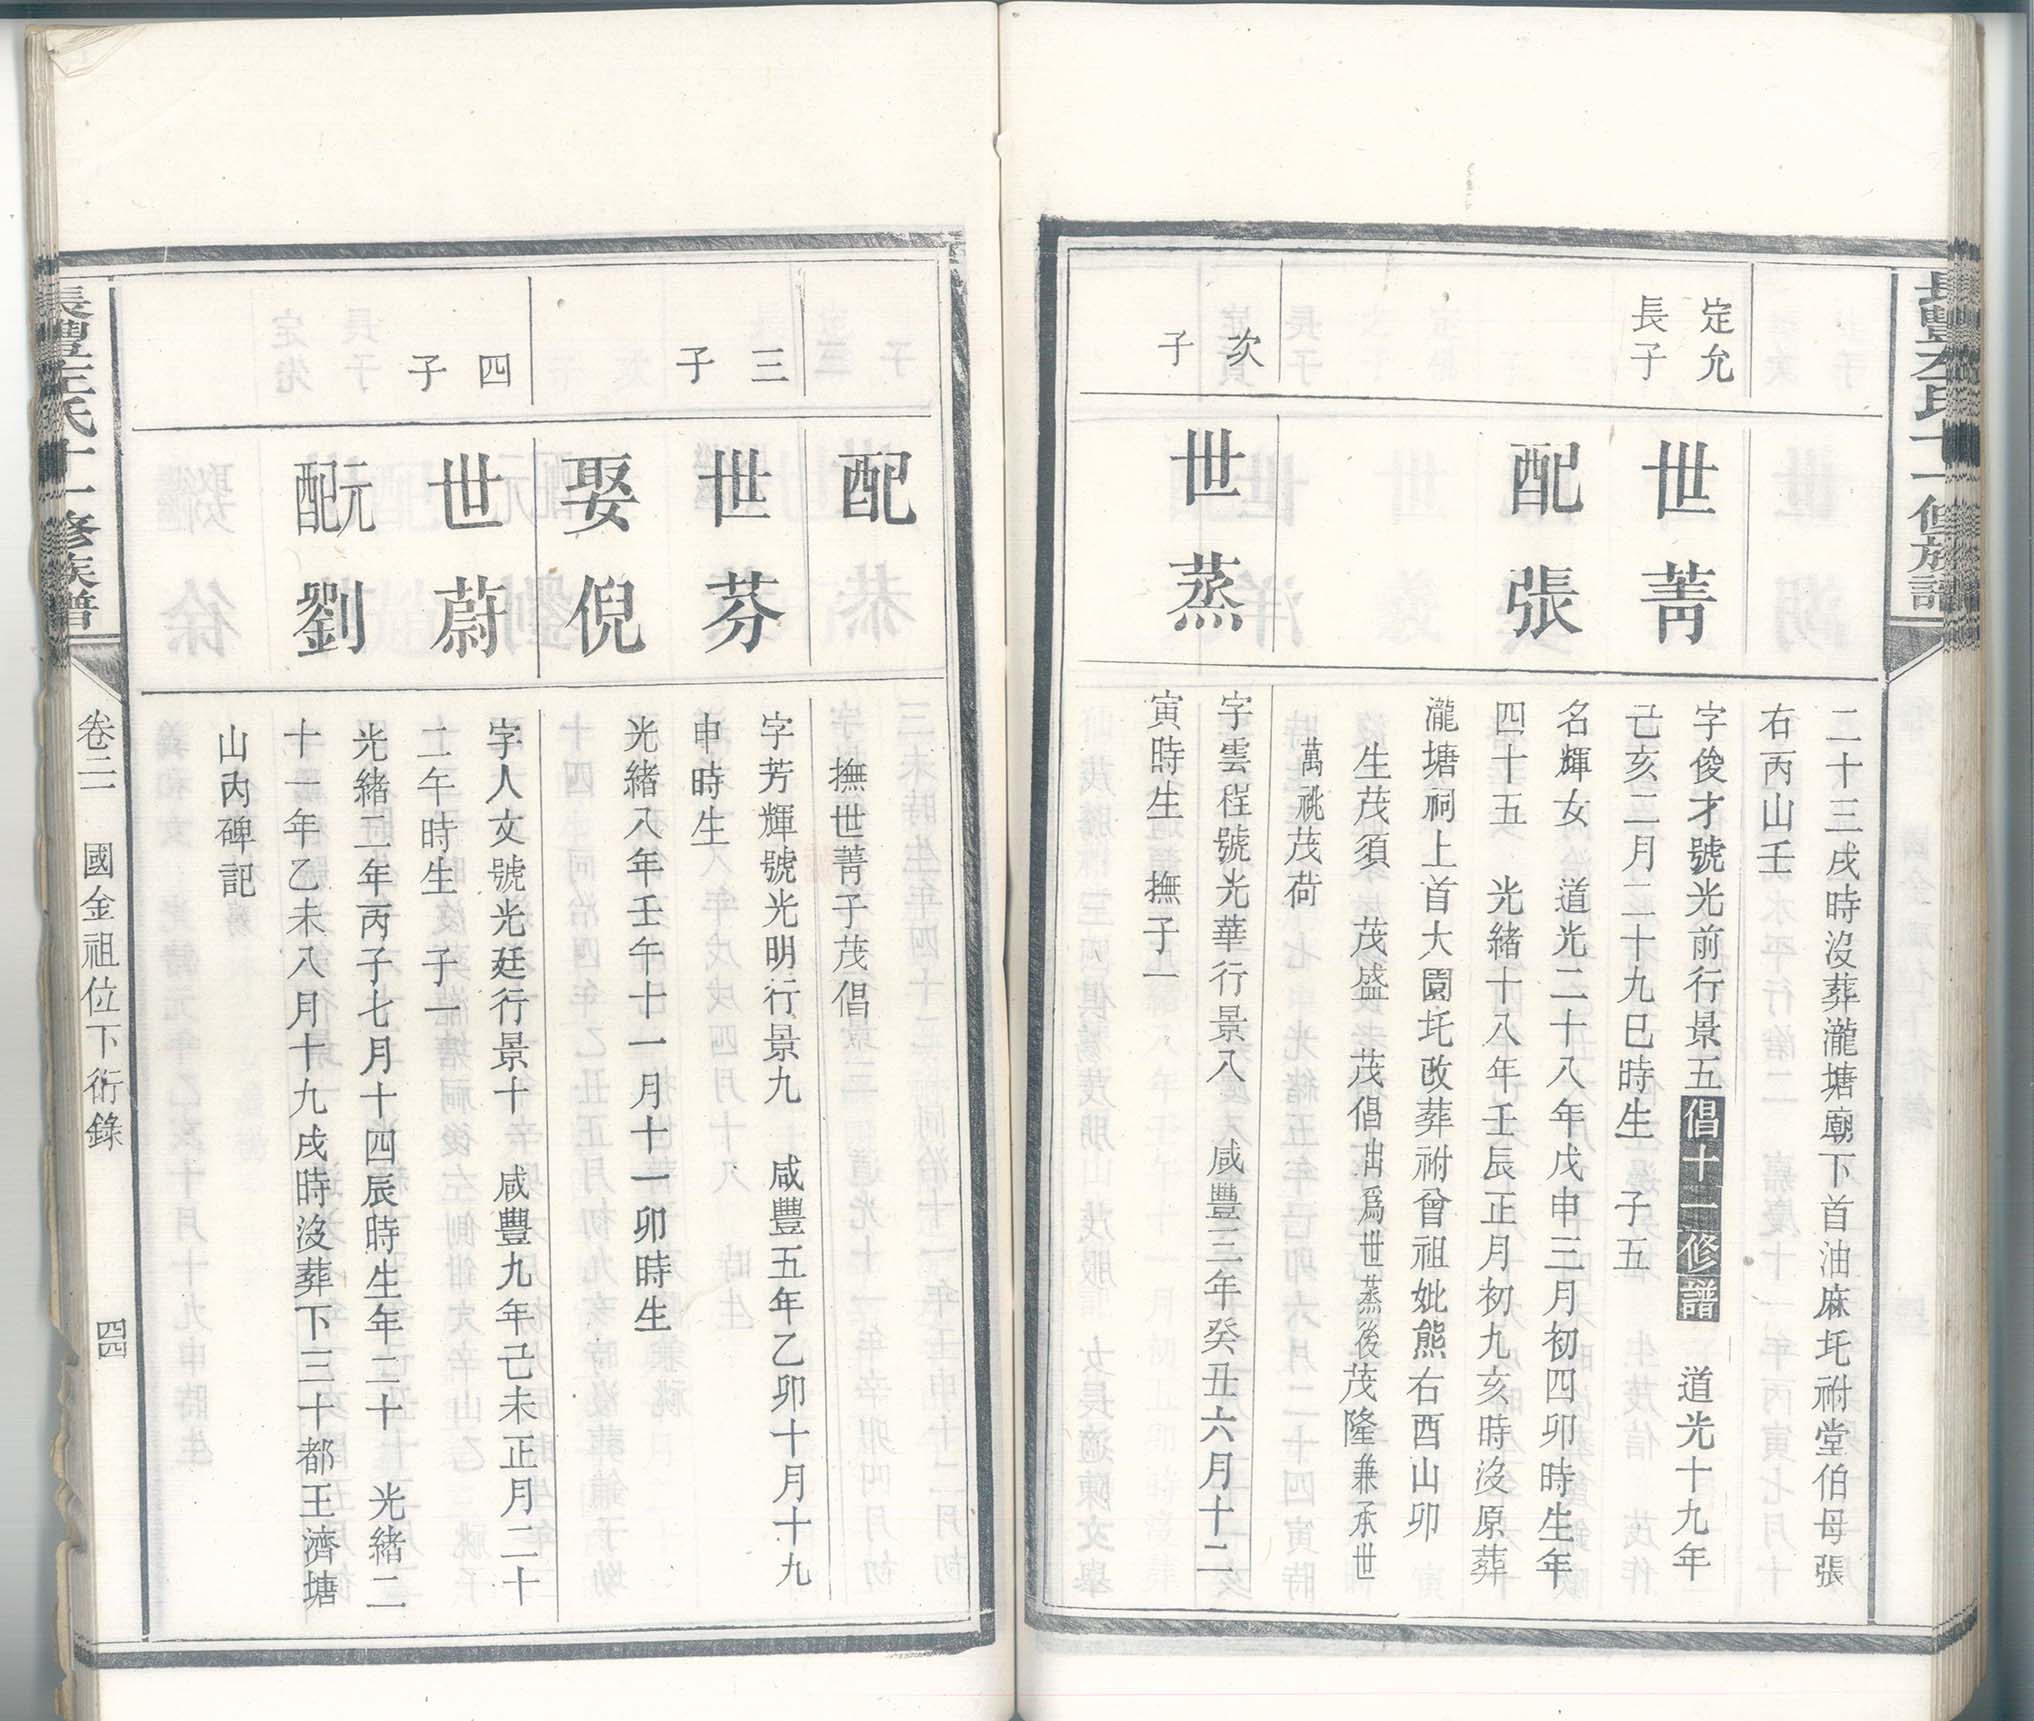 長豐左氏十一修族譜
二十三戌時沒葬瀧塘廟下首油麻圫祔堂伯母張
右丙山壬
定允
長子
世菁
字俊才號光前行景五倡十一修譜 道光十九年
己亥二月二十九巳時生 子五
配張
名輝女 道光二十八年戊申三月初四卯時生年
四十五 光緒十八年壬辰正月初九亥時沒原葬
瀧塘祠上首大園圫改葬祔曾祖妣熊右酉山卯
生茂須 茂盛 茂倡出爲世蒸後茂隆兼承世
萬祧茂荷
次
子
世蒸
字雲程號光華行景八 咸豐三年癸丑六月十二
寅時生 撫子一
配
撫世菁子茂倡
三
子
世芬
字芳輝號光明行景九 咸豐五年乙卯十月十九
申時生
娶倪
光緒八年壬午十一月十一卯時生
四
子
世蔚
字人文號光廷行景十 咸豐九年己未正月二十
二午時生 子一
元配劉
光緒二年丙子七月十四辰時生年二十 光緒二
十一年乙未八月十九戌時沒葬下三十都王濟塘
山內碑記
長豐左氏十一修族譜
卷二 國金祖位下衍錄 四四